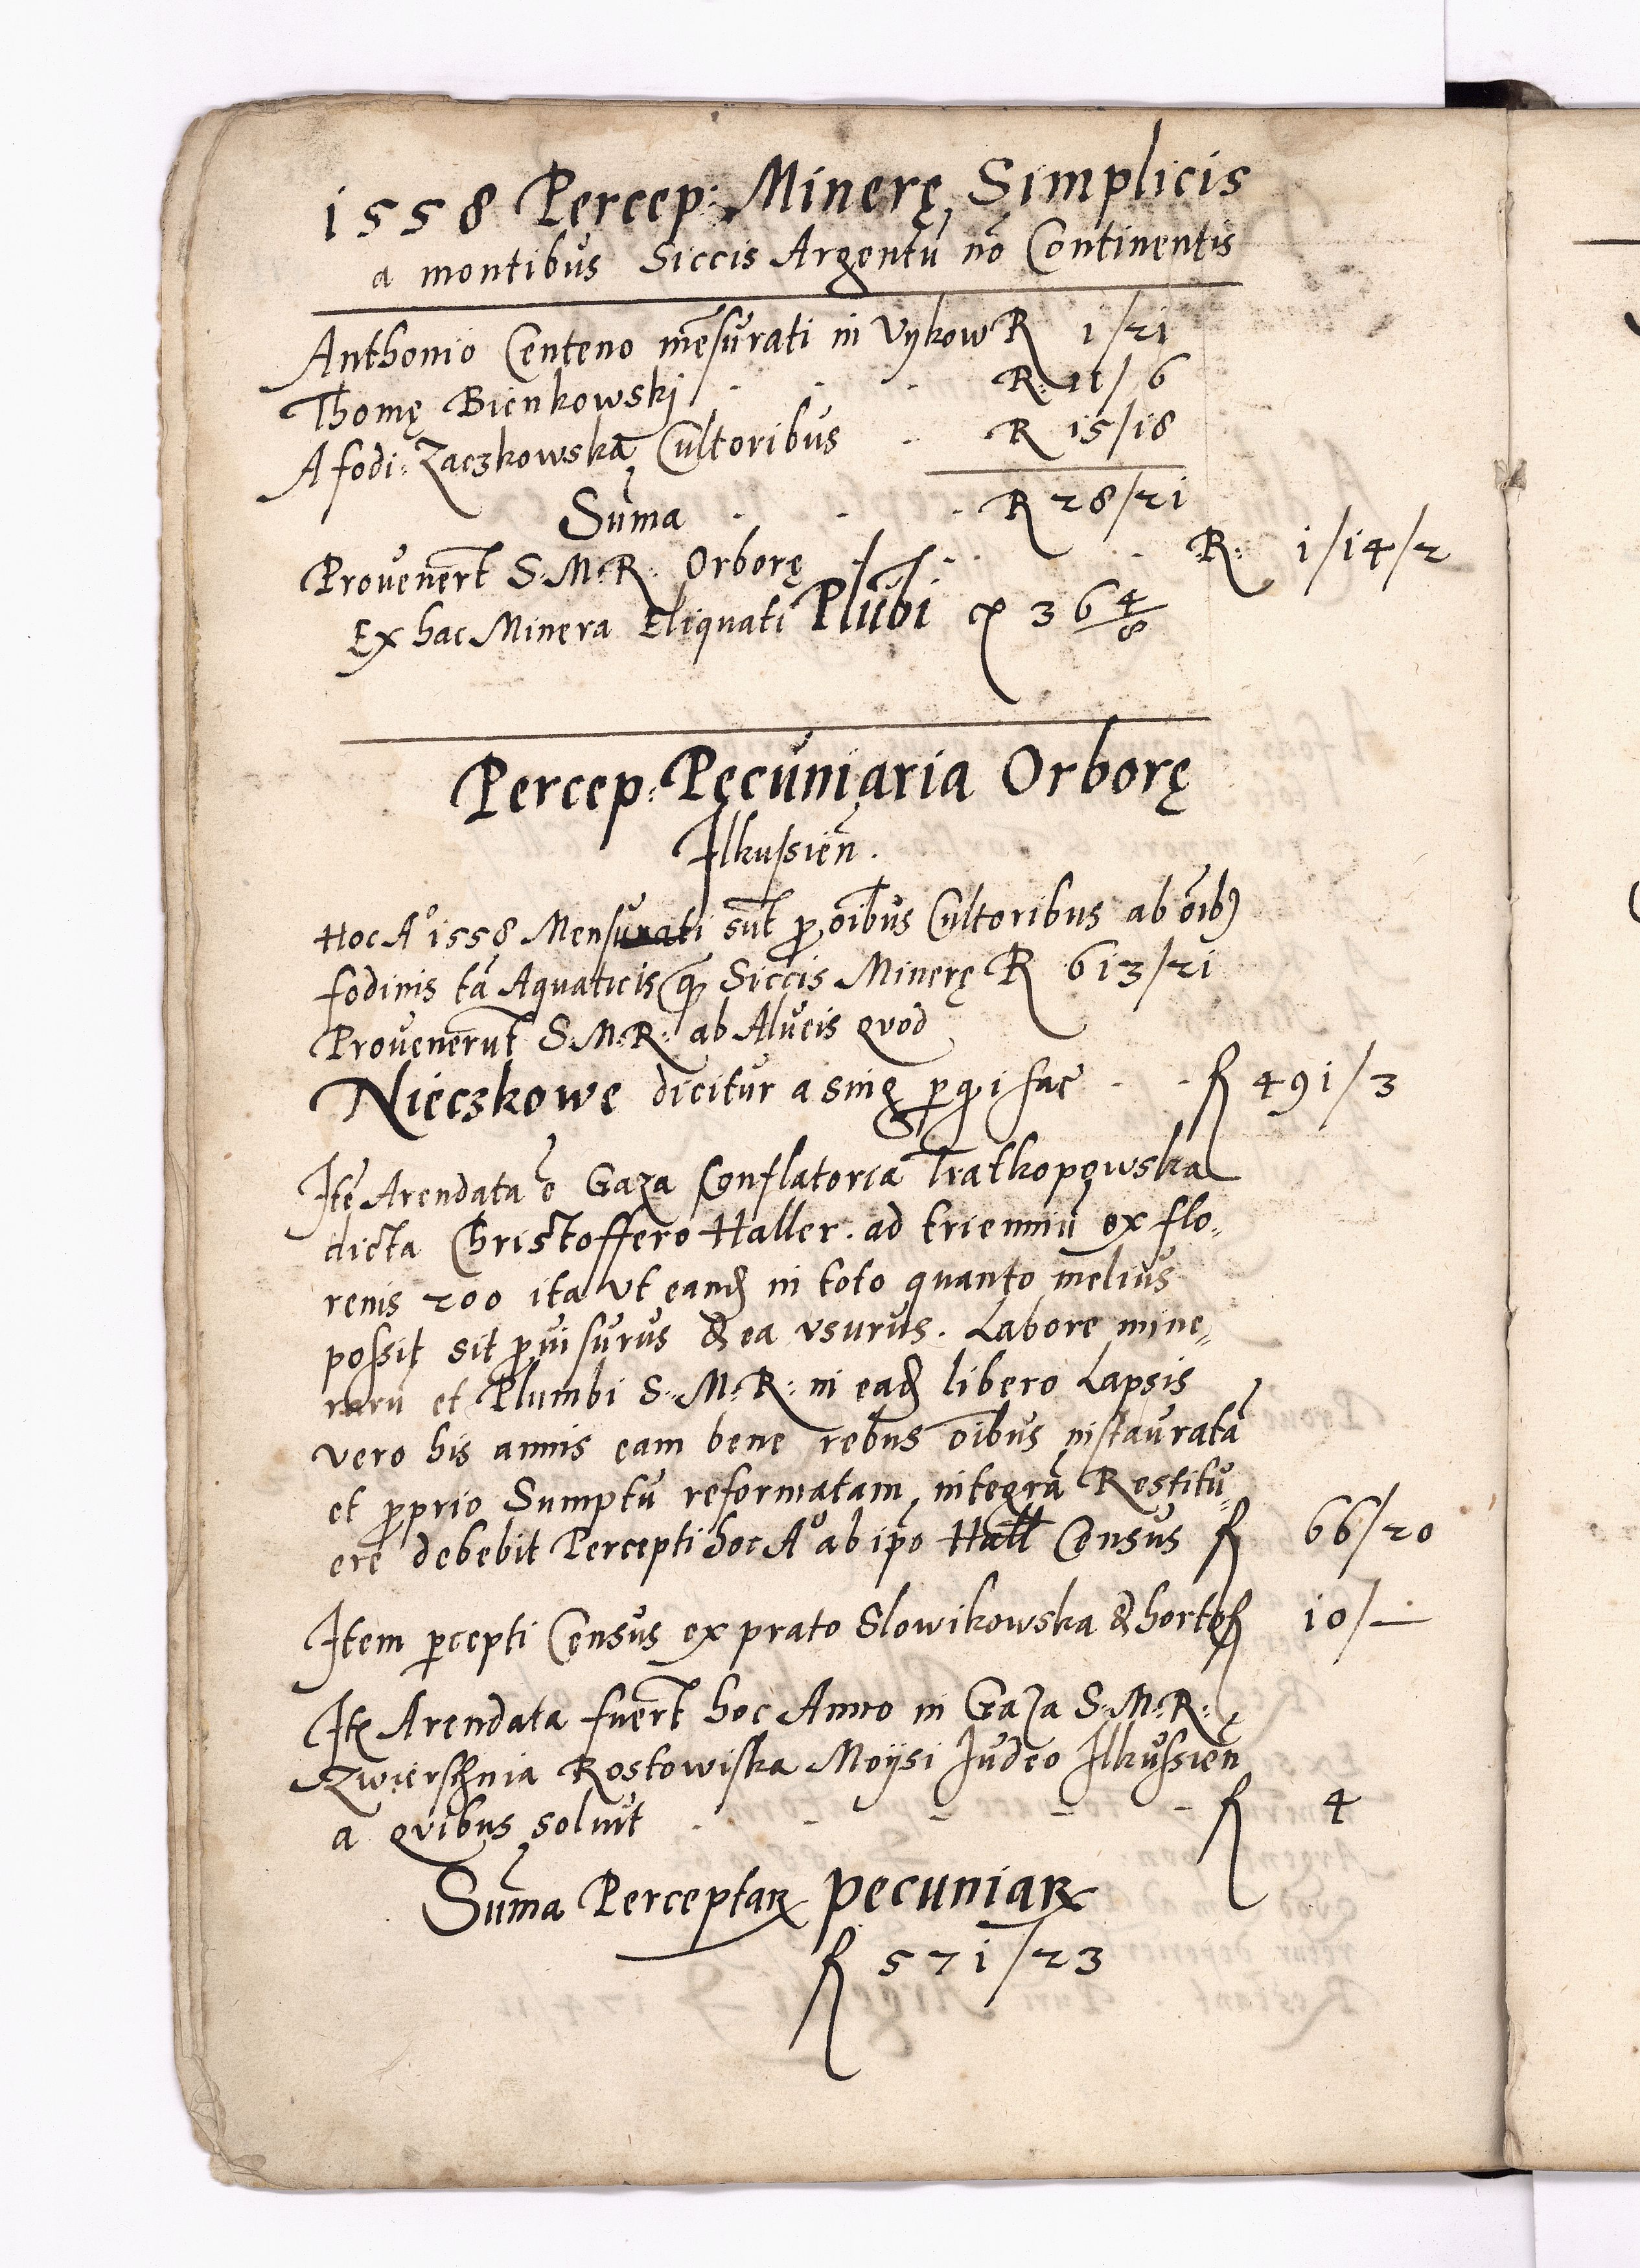 1558 Percep: Minerę Simplicis
a montibus Siccis Argentū nō Continentis
Anthonio Centeno mēsurati in Vykow R 1/21
Thomę Bienkowskj - - - R: 11/6
A fodi: Zaczkowska Cultoribus - R 15/18
Suma - - - R 28/21
Provenert S: M: R: Orborę - - - R: 1/14/2
Ex hac Minera Eliquati Plūbi 36 4/8
Percep: Pęcuniaria Orborę
Ilkussień.
Hoc A° 1558 Mensurati sūt p oībus Cultoribus ab oīb9
fodinis tā Aquaticis q̄ Siccis Minerę R 613/21
Provenerūt S: M: R: ab Alveis qvod
Nieczkowe dicitur a sing fac - - R 491/3
Itē Arendata ē Gaza Conflatoria Tratkopowska
dicta Christoffero Haller. ad trienniū ex flo=
renis 200 ita vt eand in toto quanto melius
possit sit pvisurus & ea vsurus. Labore mine=
raru et Plumbi S: M: R: in ead libero Lapsis
vero his annis eam bene rebus oībus instauratā
et pprio Sumptu reformatam integrā Restitu=
ere debebit Percepti hoc A° ab ipō Hall Census R 66/20
Item pcepti Census ex prato Slowikowska & horto R 10/—
Itē Arendata fuert hoc Anno in Gaza S: M: R:
Zwierschnia Rostowiska Moÿsi Iudeo Ilkussień
a qvibus solvit - - - - R 4
Suma Perceptar pecuniar
R 571/23